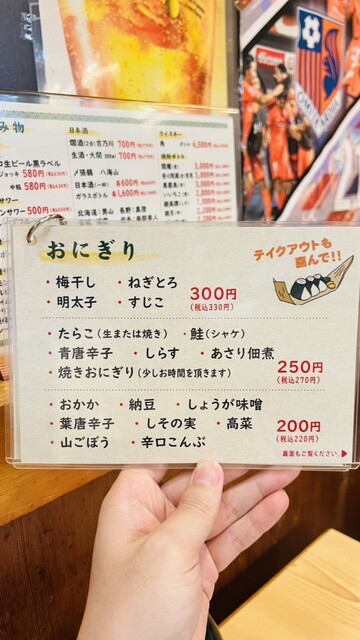 み物
生ビール黒ラベル
ジョッキ 580円
中瓶 580円
サワー
ンサワー 500円
日本酒
燗酒(2合)吉乃川 700円
生酒・大関 300㎖ 700円
〆張鶴 八海山
日本酒(一杯) ¥600円
ガラスボトル ¥1,600円
北海道：男山 長野：真澄
ウイスキー
角 ボトル 4,500円
焼酎ボトル
おにぎり
テイクアウトも
喜んで!!
・梅干し ・ねぎとろ
・明太子 ・すじこ
300円
(税込330円)
・たらこ(生または焼き) ・鮭(シャケ)
・青唐辛子 ・しらす ・あさり佃煮
・焼きおにぎり(少しお時間を頂きます)
250円
(税込270円)
・おかか ・納豆 ・しょうが味噌
・葉唐辛子 ・しその実 ・高菜
・山ごぼう ・辛口こんぶ
200円
(税込220円)
裏面もご覧ください。▶